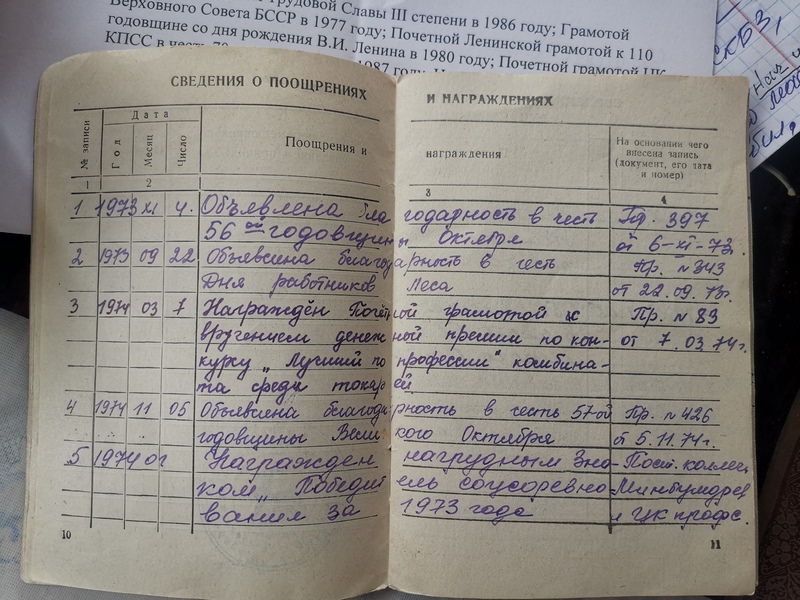 Трудовой Славы III степени в 1986 году; Грамотой
Верховного Совета БССР в 1977 году; Почетной Ленинской грамотой к 110
годовщине со дня рождения В.И. Ленина в 1980 году; Почетной грамотой ЦК
КПСС в честь 70
1987 году
СКБ3,
СВЕДЕНИЯ О ПООЩРЕНИЯХ И НАГРАЖДЕНИЯХ
№ записи Дата Поощрения и награждения На основании чего внесена запись (документ, его дата и номер)
Год Месяц Число
1 2 3 4
1 1973 XI 4. Объявлена благодарность в честь Пр. 397
56ой годовщины Октября от 6-XI-73.
2 1973 09 22 Объявлена благодарность в честь Пр. №343
Дня работников леса от 22.09.73г.
3 1974 03 7 Награждён Почётной грамотой с Пр. №89
вручением денежной премии по кон- от 7.03.74г.
курку „Лучший по профессии" комбина-
та среди токарей
4 1974 11 05 Объявлена благодарность в честь 57-ой Пр. №426
годовщины Великого Октября от 5.11.74г.
5 1974 01 Награжден нагрудным Зна- Пост. коллег
ком „Победитель соцсоревно- Минбумдрев
вания за 1973 года и ЦК профс.
10 11